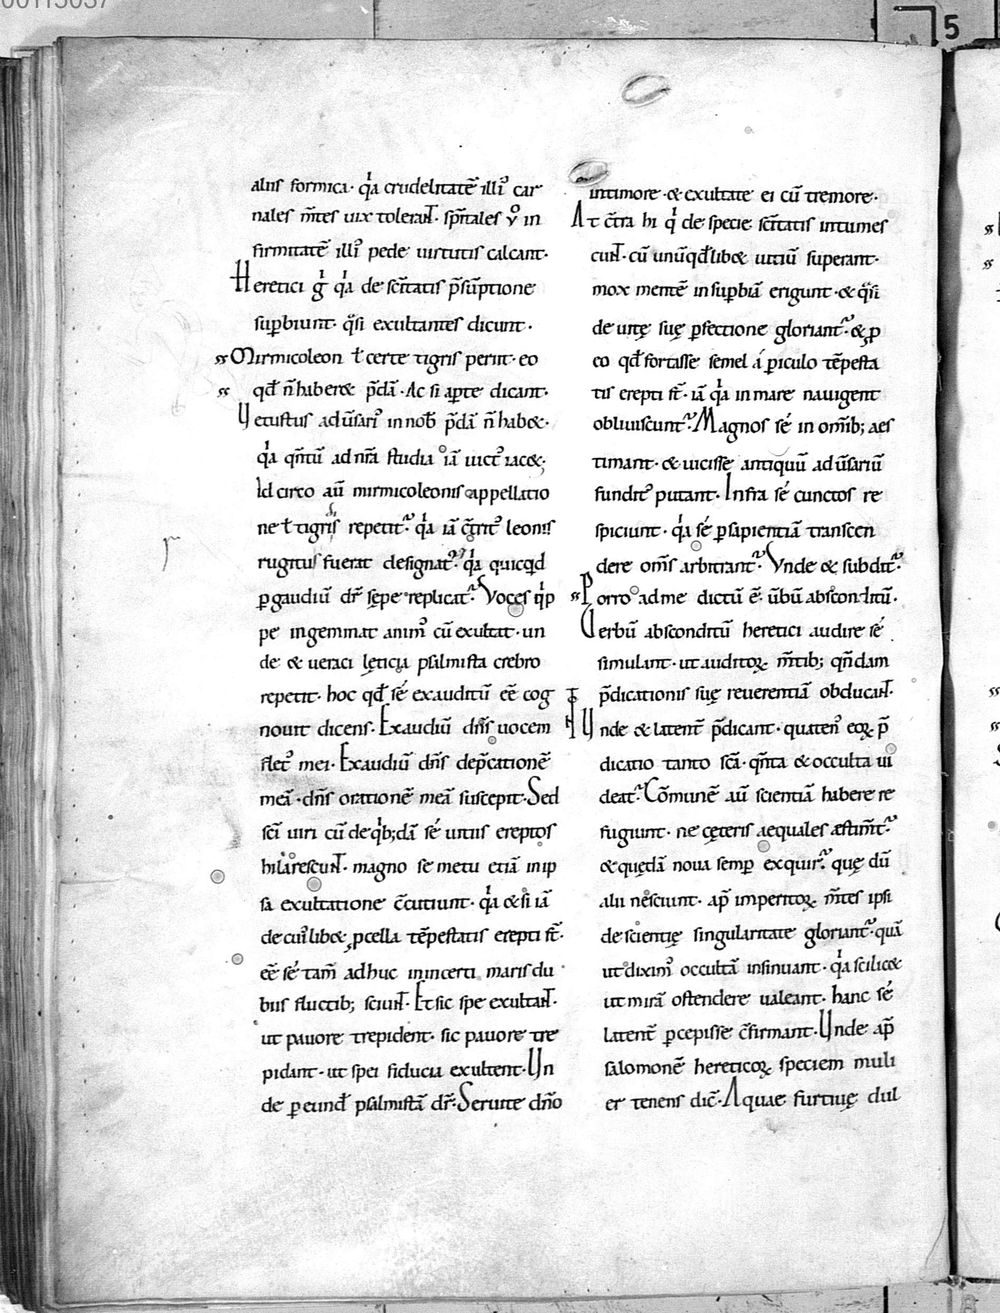 00113037
5
aliis formica · qͥa crudelitatē illiꝰ car
nales m̄tes uix tolerant̄. sp̄itales v̊ in
firmitatē illiꝰ pede uirtutis calcant·
Heretici gͥ qͥa de sc̄itatis p̄sūptione
suꝑbiunt· qͥsi exultantes dicunt ·
Mirmicoleon ł certe tigris periit· eo
qđ n̄ haber& p̄dā · Ac si aꝑte dicant·
Uetustus adūsariꝰ in nob̄ p̄dā n̄ hab&·
qͥa qn̄tū ad nr̄a studia iā uictꝰ iac&;
Idcirco aū mirmicoleonis appellatio
ne ł tigris repetit᷑· qͥa iā c̄triꝰ leonis
rugitus fuerat designatꝰ· qͥa quicqd
ꝑ gaudiū dr̄ sępe replicat᷑· Voces qͥp
pe ingeminat animꝰ cū exultat · un
de & ueraci lęticia psalmista crebro
repetit· hoc qđ sé exauditū eē cog
nouit dicens· Exaudiū dn̄s uocem
flet᷑ mei· Exaudiū dn̄s dep̄cationē
meā · dn̄s orationē meā suscepit· Sed
sc̄i uiri cū de qͥb;dā sé uitiis ereptos
hilarescunt̄· magno se metu etiā in ip
sa exultatione c̄cutiunt · qͥa & si iā
de cuiꝰlib& ꝓcella tēpestatis erepti st̄·
eē sé tam̄ adhuc in incerti maris du
biis fluctib; sciunt̄· Et sic spe exultant̄·
ut pauore trepident· sic pauore tre
pidant · ut spei fiducia exultent· Un
de ꝑ eund̄ psalmistā dr̄· Seruite dn̄o
in timore · & exultate ei cū tremore·
At c̄tra hi qͥ de specie sc̄itatis intumes
cunt̄· cū unūqđlib& uitiū superant·
mox mentē in suꝑbiā erigunt · & qͥsi
de uitę suę ꝑfectione gloriant᷑ · & ꝓ
eo qđ fortasse semel á ꝑiculo tēpesta
tis erepti st̄· iā qͥa in mare nauigent
obliuiscunt᷑· Magnos sé in om̄ib; aes
timant · & uicisse antiquū adūsariū
funditꝰ putant · Infra sé cunctos re
spiciunt · qͥa sé ꝑ sapientiā transcen
dere om̄s arbitrant᷑· Vnde & subdit᷑·
Porro ad me dictū ē· ūbū absconditū·
Uerbū absconditū heretici audire sé
simulant· ut auditoꝝ m̄tib; qn̄dam
p̄dicationis suę reuerentiā obducant̄·
Unde & latent̄ p̄dicant · quatenꝰ eoꝝ p̄
dicatio tanto sc̄a · qn̄ta & occulta ui
deat᷑· Cōmunē aū scientiā habere re
fugiunt · ne cęteris aequales ęstiment᷑
& quędā noua semꝑ exquir᷑· quę dū
alii nesciunt · ap̄ imperitoꝝ m̄tes ipsi
de scientię singularitate gloriant᷑· quā
ut diximꝰ occultā insinuant · qͥa scilic&
ut mirā ostendere ualeant · hanc sé
latent̄ ꝑcepisse c̄firmant · Unde ap̄
salomonē hereticoꝝ speciem muli
er tenens dic̄· Aquae furtiuę dul